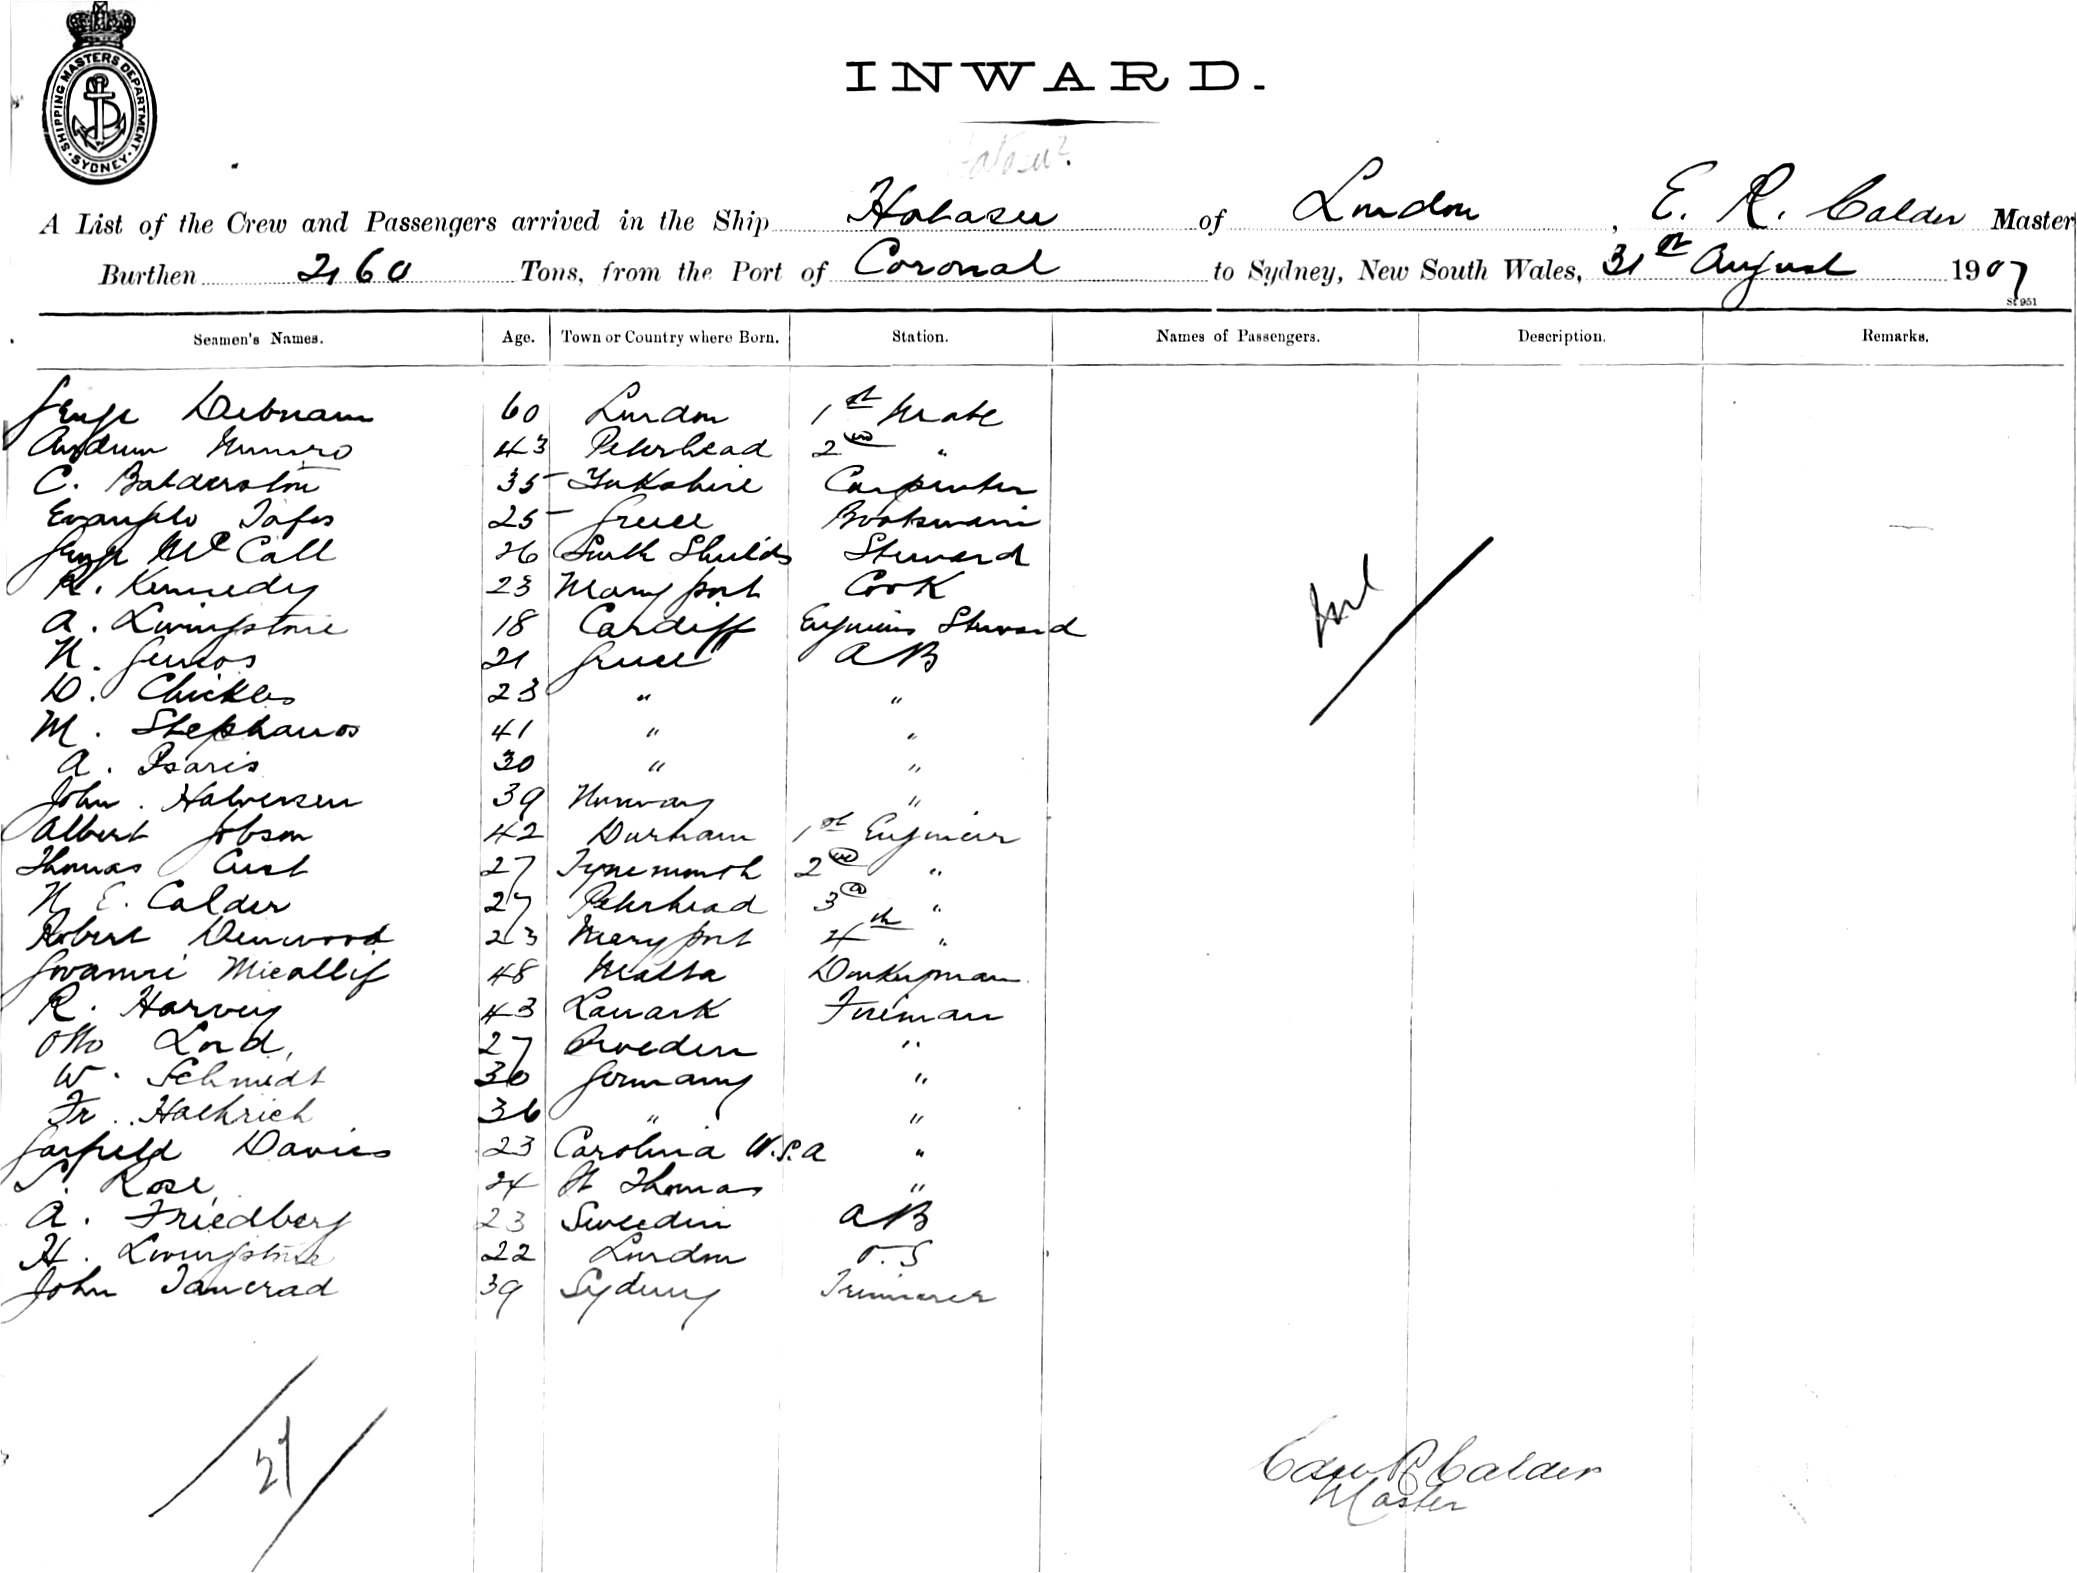 SHIPPING MASTERS DEPARTMENT · SYDNEY ·
INWARD.
A List of the Crew and Passengers arrived in the Ship Hobasu of London, E. R. Calder Master
Burthen 2160 Tons, from the Port of Coronal to Sydney, New South Wales, 31st August 1907
St 951
Seamen's Names. Age. Town or Country where Born. Station. Names of Passengers. Description. Remarks.
George Debnam 60 London 1st Mate
Andrew Munro 43 Peterhead 2nd "
C. Balderston 35 Yorkshire Carpenter
Evangelo Tafos 25 Greece Boatswain
George McCall 26 South Shields Steward
R. Kennedy 23 Maryport Cook
A. Livingstone 18 Cardiff Engineers Steward
N. Genios 21 Greece AB
D. Chickles 23 " "
M. Stephanos 41 " "
A. Psaris 30 " "
John Halversen 39 Norway "
Albert Jobson 42 Durham 1st Engineer
Thomas Cust 27 Tynemouth 2nd "
N. E. Calder 27 Peterhead 3d "
Robert Denwood 23 Maryport 4th "
Giovanni Micallif 48 Malta Donkeyman
R. Harvey 43 Lanark Fireman
Otto Lord, 27 Sweden "
W. Schmidt 30 Germany "
Fr. Halhrich 36 " "
Garfield Davies 23 Carolina U.S.A "
Rose 24 St Thomas "
A. Friedberg 23 Sweedin AB
H. Livingstone 22 London O.S
John Tancrad 39 Sydney Trimmer
Nil
27
Edw R Calder
Master